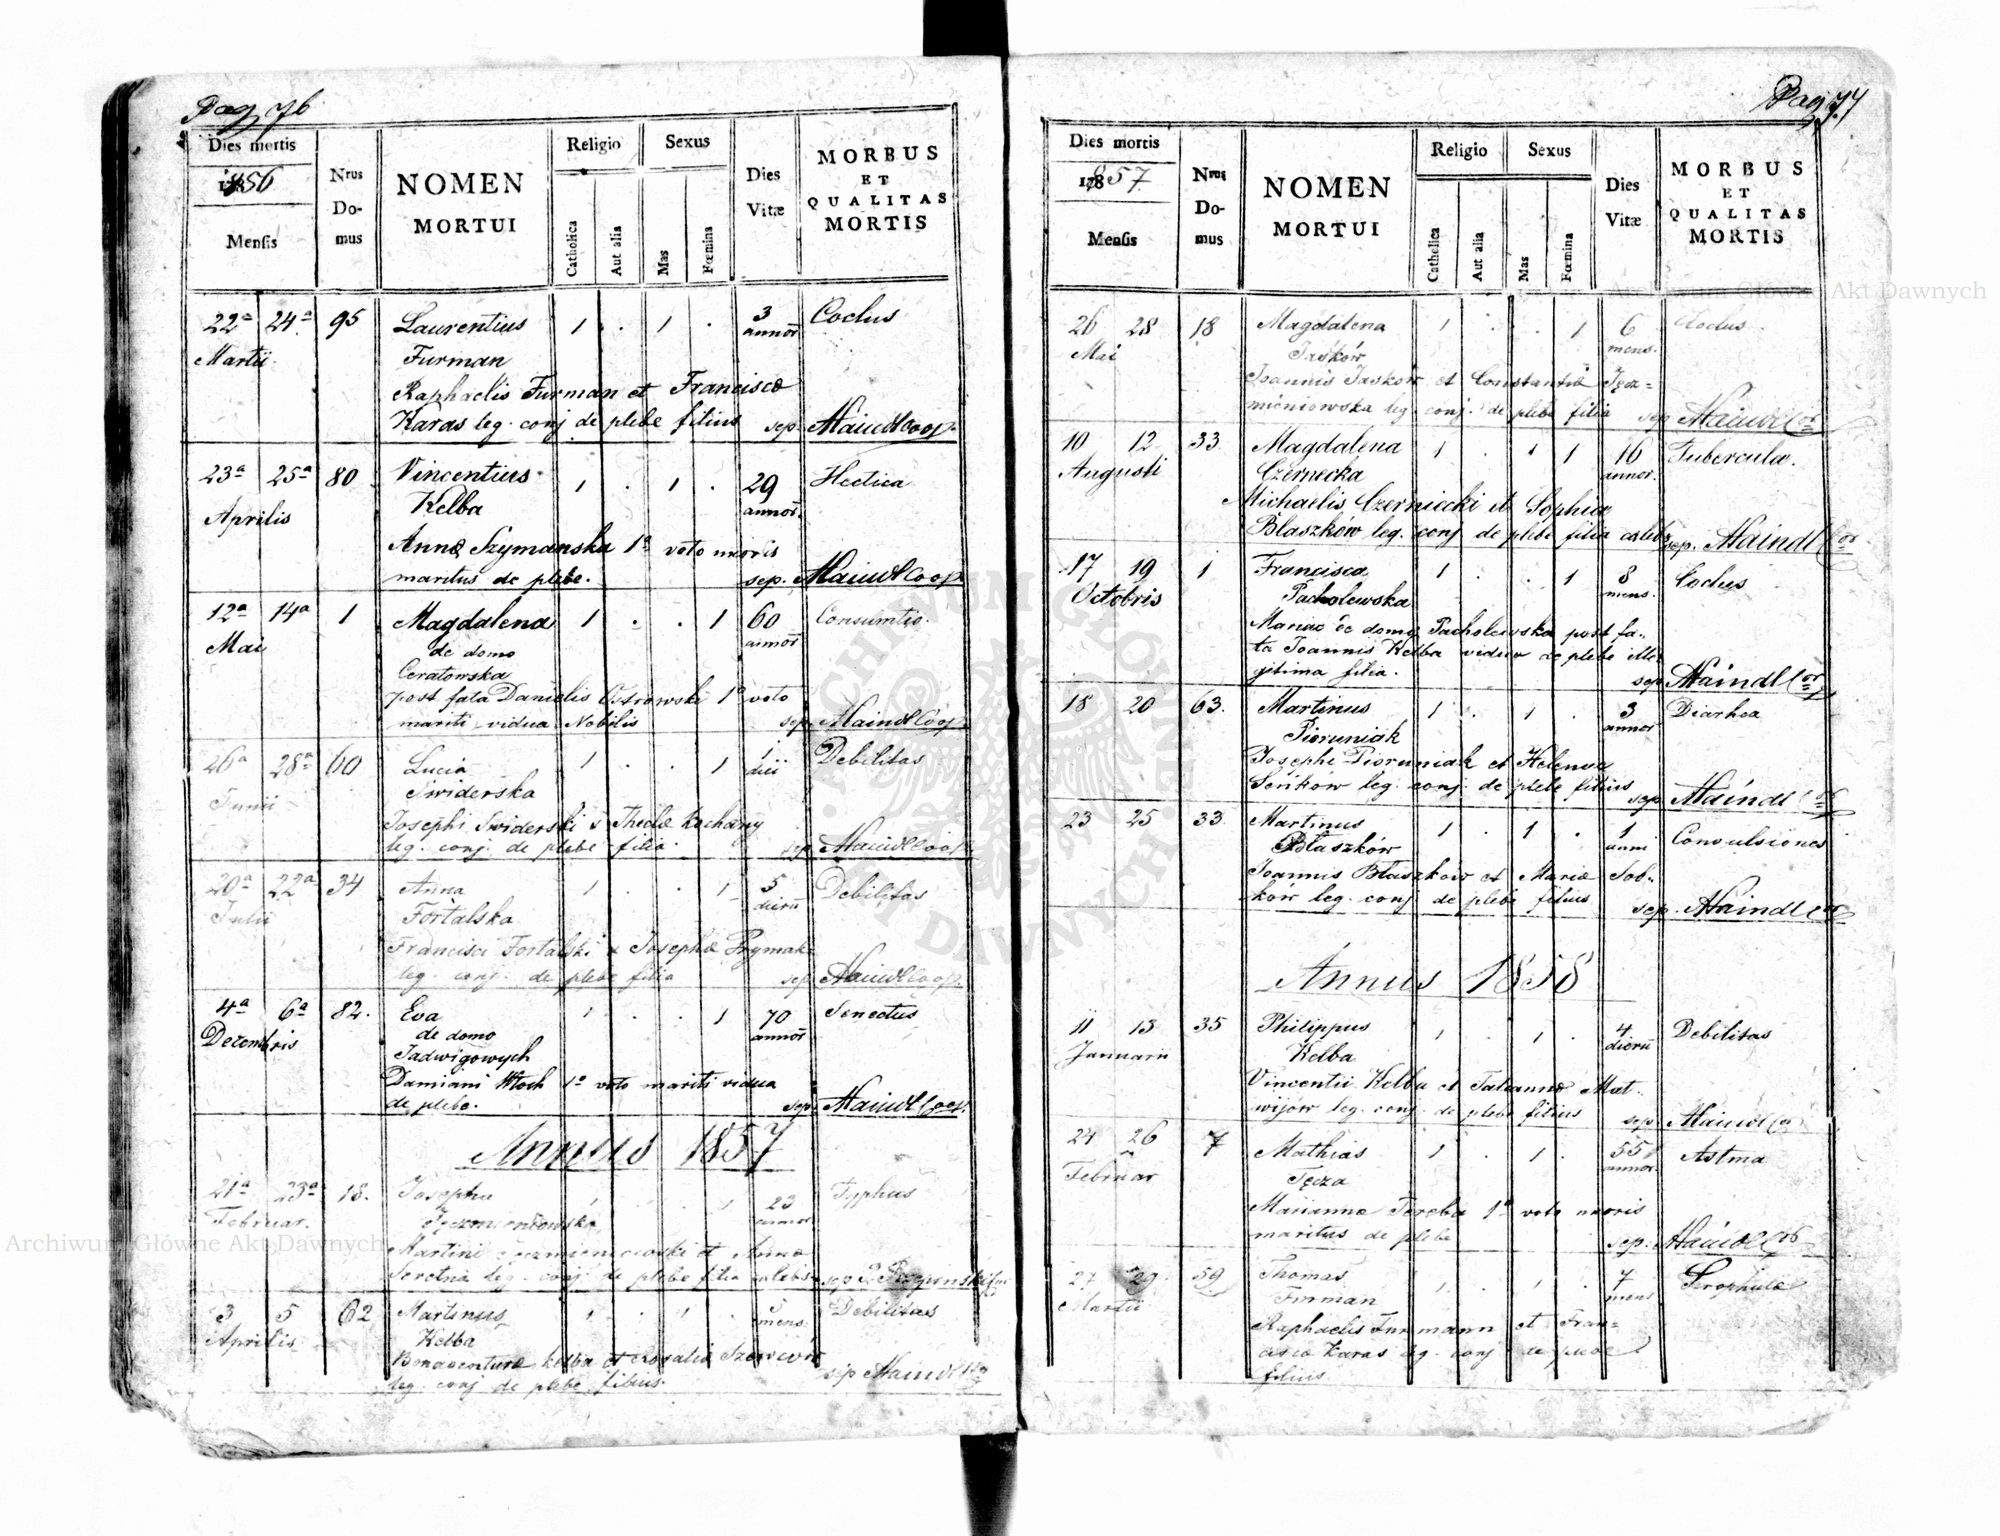 Pag. 76
Dies mortis
1856
Mensis
Nrus
Do-
mus
NOMEN
MORTUI
Religio
Catholica
Aut alia
Sexus
Mas
Fœmina
Dies
Vitæ
MORBUS
ET
QUALITAS
MORTIS
22ª 24ª 95 Laurentius 1 . 1 . 3 Coclus
Martii Furman annor
Raphaelis Furman et Franciscæ
Karas leg. conj. de plebe filius sep. Maindl Coop.
23ª 25ª 80 Vincentius 1 . 1 . 29 Hectica
Aprilis Kelba annor.
Annæ Szymanska 1º voto uxoris
maritus de plebe. sep. Maindl Coop.
12ª 14ª 1 Magdalena 1 . . 1 60 Consumtio.
Mai de domo annor
Ceratowska
post fata Danielis Ostrowski 1º voto
mariti vidua Nobilis sep. Maindl Coop.
26ª 28ª 60 Lucia 1 . . 1 1 Debilitas
Junii Swiderska diei
Josephi Swiderski & Theclæ Kochany
leg. conj. de plebe filia. sep. Maindl Coop.
20ª 22ª 34 Anna 1 . . 1 5 Debilitas
Julii Fortalska dierū
Francisci Fortalski & Josephæ
leg. conj. de plebe filia sep. Maindl Coop.
4ª 6ª 82. Eva 1 . . 1 70 Senectus
Decembris de domo annor
Jadwigowych
Damiani Włoch 1º voto mariti vidua
de plebe. sep. Maindl Coop.
Annus 1857
21ª 23ª 18. Josepha 1 . . 1 23 Typhus
Februar. annor
Martini et Annæ
leg. conj. de plebe filia cælebs sep.
3 5 62 Martinus 1 . 1 . mens. Debilitas
Aprilis Kelba
Bonaventuræ Kelba et Rosalia
leg. conj. de plebe filius. sep. Maindl
Pag. 77
Dies mortis
1857
Mensis
Nrus
Do-
mus
NOMEN
MORTUI
Religio
Catholica
Aut alia
Sexus
Mas
Fœmina
Dies
Vitæ
MORBUS
ET
QUALITAS
MORTIS
26 28 18 Magdalena 1 . . 1 6 Coclus
Mai Jasków mens.
Joannis Jasków et Constantiæ Jęcz=
mieniowska leg. conj. de plebe filia sep. Maindl
10 12 33 Magdalena 1 . 1 16 Tubercula.
Augusti Czernecka annor.
Michaelis Czerniecki et Sophiæ
Blaszków leg. conj. de plebe filia cælebs sep. Maindl Cor
17 19 1 Francisca 1 . . 1 8 Coclus
Octobris Pacholewska mens.
Mariæ de domo Pacholewska post fa-
ta Joannis Kelba viduæ de plebe ille-
gitima filia. sep. Maindl Cor
18 20 63. Martinus 1 . 1 . 3 Diarhea
Pioruniak annor
Josephi Pioruniak et Helenæ
Seńków leg. conj. de plebe filius sep. Maindl
23 25 33 Martinus 1 . 1 . 1 Convulsiones
Błaszków anni
Joannis Błaszkow et Mariæ Sob-
ków leg. conj. de plebe filius sep. Maindl Cor
Annus 1858
11 13 35 Philippus 1 . 1 . 4 Debilitas
Januarii Kelba dierū
Vincentii Kelba et Tatiannæ Mat-
wijów leg. conj. de plebe filius sep. Maindl Cor
24 26 7 Mathias 1 . 1 . 55 Astma
Februar Tęcza annor.
Mariannæ Tereba 1º voto uxoris
maritus de plebe sep. Maindl
27 29 59 Thomas 1 . 1 . 7 Scrophulæ
Martii Furman mens
Raphaelis Furmann et Fran=
ciscæ Karas leg. conj. de plebe
filius
Archiwum Główne Akt Dawnych
Archiwum Główne Akt Dawnych
ARCHIWUM GŁÓWNE AKT DAWNYCH